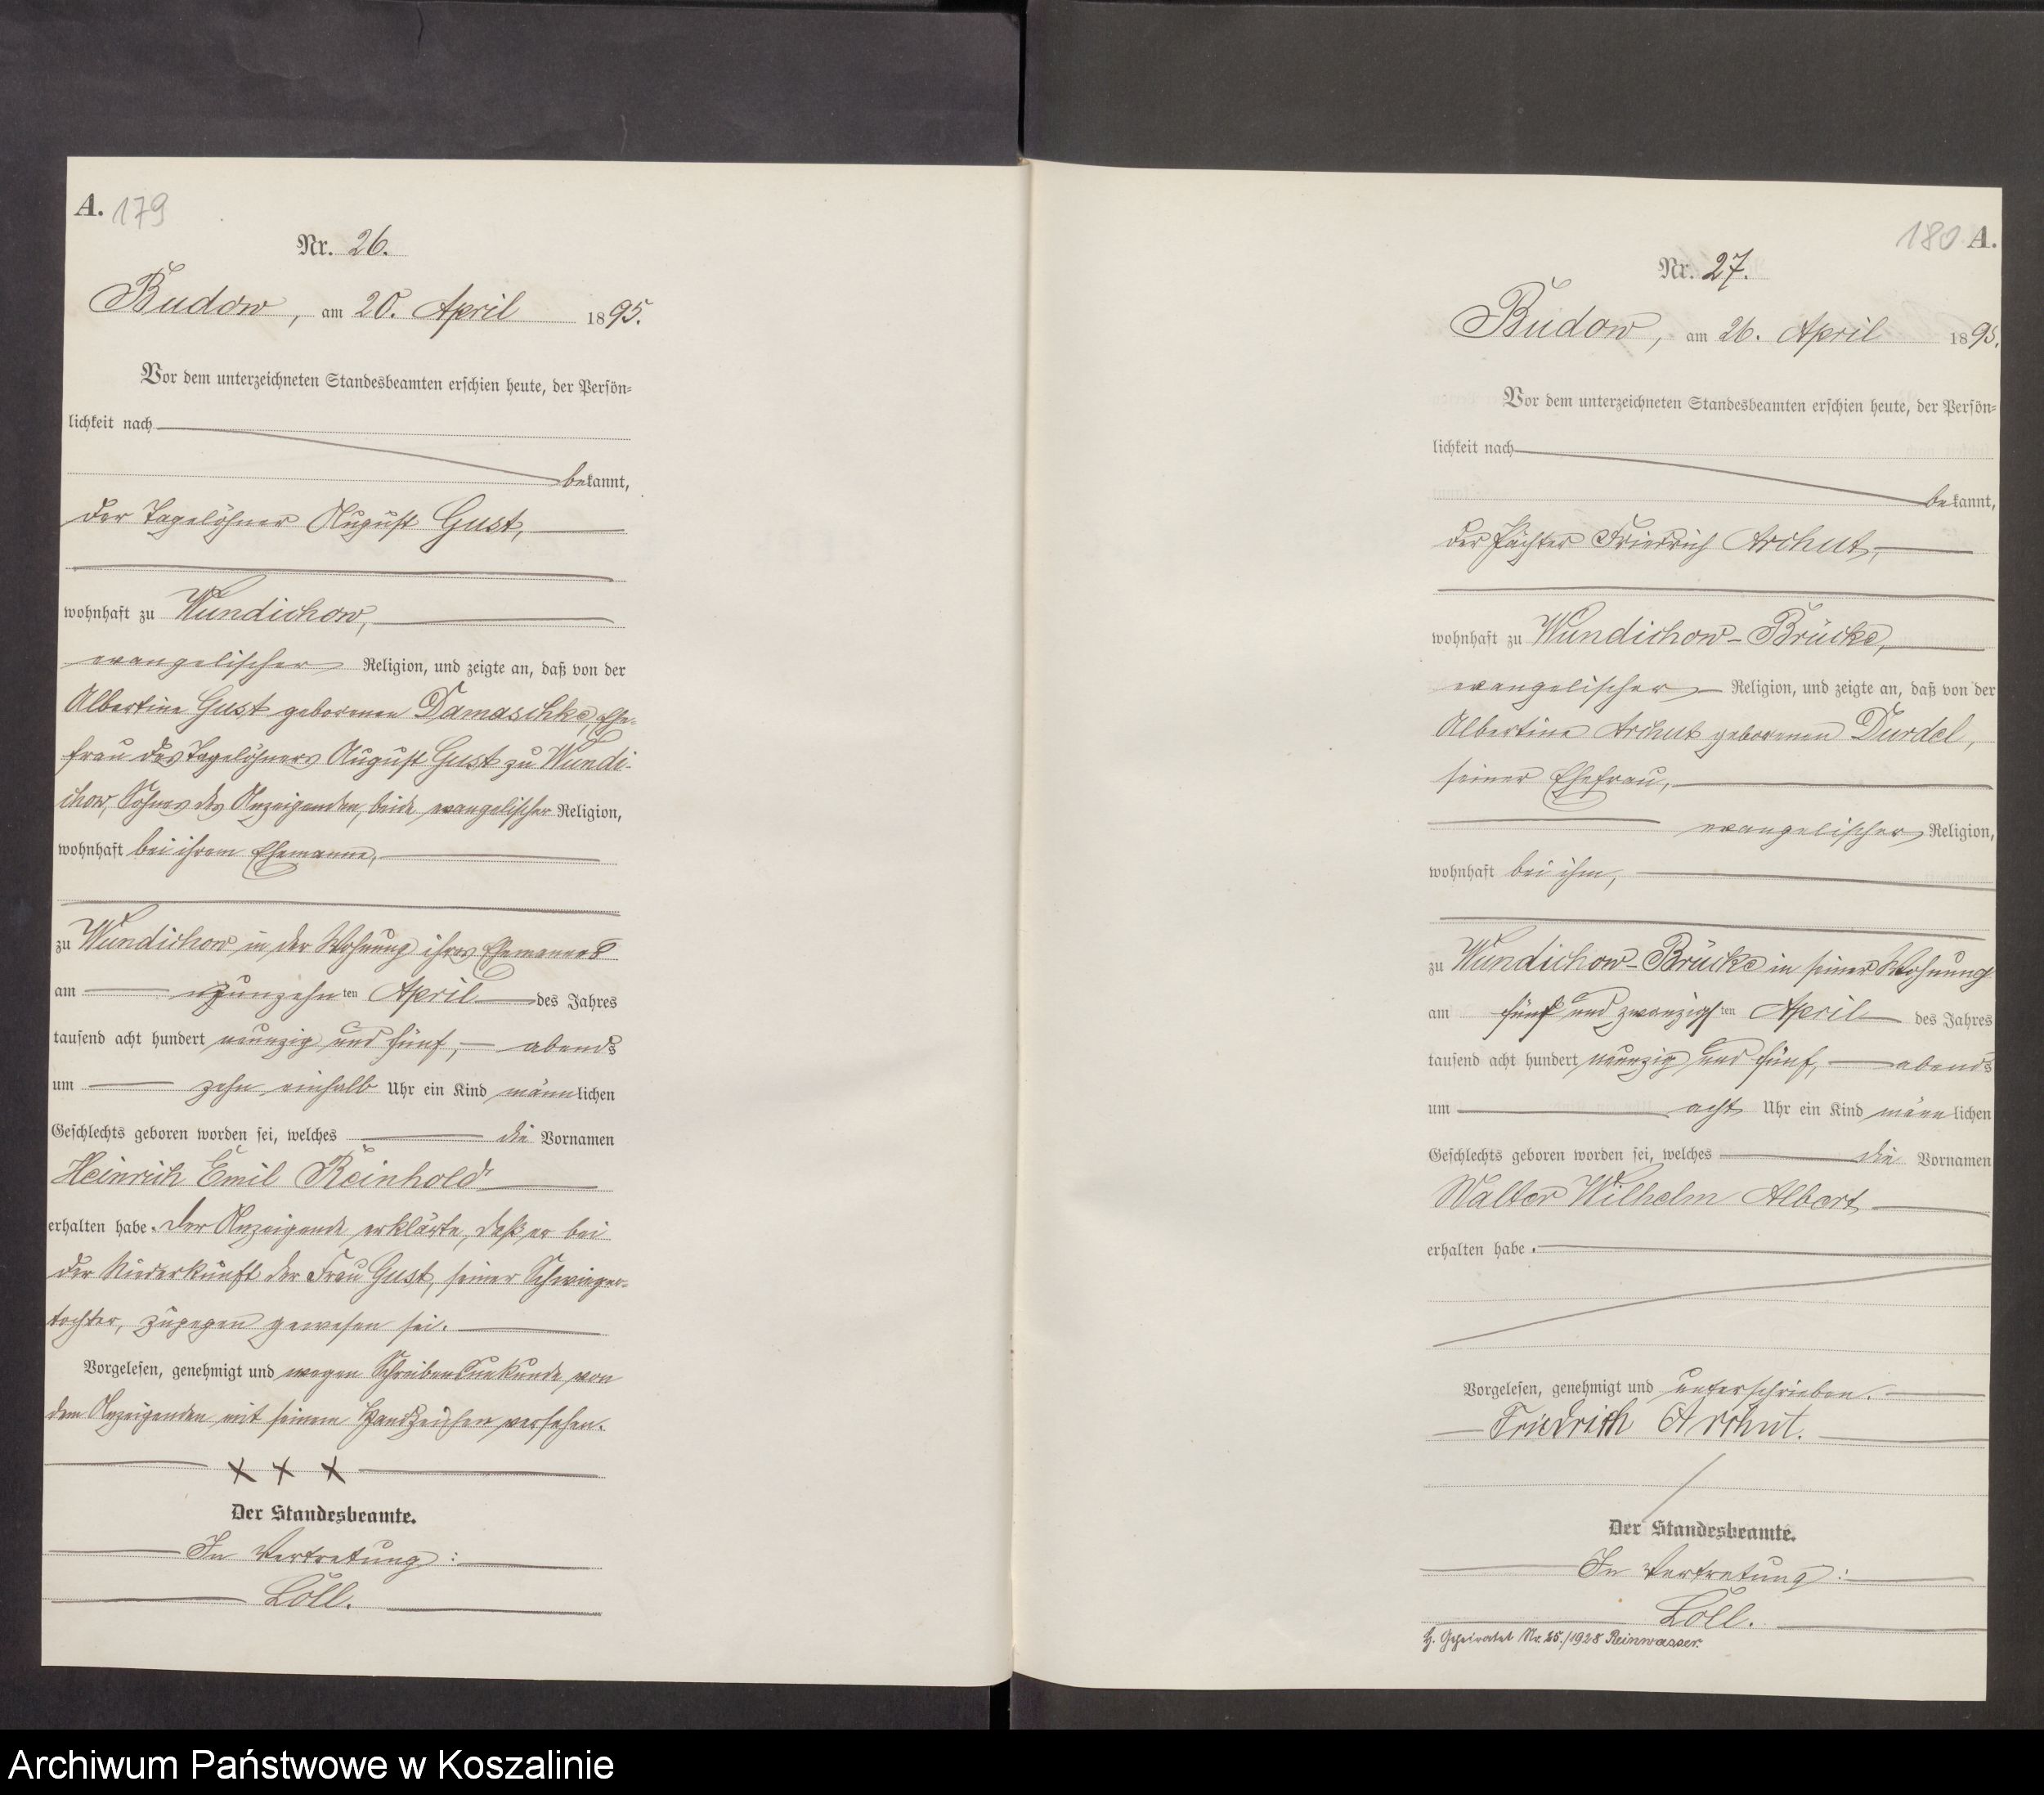 A. 179
Nr. 26.
Budow, am 20. April 1895.
Vor dem unterzeichneten Standesbeamten erschien heute, der Persön-
lichkeit nach
bekannt,
der Tagelöhner August Gust,
wohnhaft zu Wundichow,
evangelischer Religion, und zeigte an, daß von der
Albertine Gust geborenen Damaschke, Ehe-
frau des Tagelöhners August Gust zu Wundi-
chow, Sohnes des Anzeigenden, beide evangelischer Religion,
wohnhaft bei ihrem Ehemanne,
zu Wundichow in der Wohnung ihres Ehemannes
am neunzehnten April des Jahres
tausend acht hundert neunzig und fünf, abends
um zehn einhalb Uhr ein Kind männlichen
Geschlechts geboren worden sei, welches die Vornamen
Heinrich Emil Reinhold
erhalten habe. Der Anzeigende erklärte, daß er bei
der Niederkunft der Frau Gust, seiner Schwieger-
tochter, zugegen gewesen sei.
Vorgelesen, genehmigt und wegen Schreibensunkunde von
dem Anzeigenden mit seinem Handzeichen versehen.
x x x
Der Standesbeamte.
In Vertretung:
Löll.
180 A.
Nr. 27.
Budow, am 26. April 1895.
Vor dem unterzeichneten Standesbeamten erschien heute, der Persön-
lichkeit nach
bekannt,
der Pächter Friedrich Archut,
wohnhaft zu Wundichow-Brücke,
evangelischer Religion, und zeigte an, daß von der
Albertine Archut geborenen Durdel,
seiner Ehefrau,
evangelischer Religion,
wohnhaft bei ihm,
zu Wundichow-Brücke in seiner Wohnung
am fünf und zwanzigsten April des Jahres
tausend acht hundert neunzig und fünf, abends
um acht Uhr ein Kind männlichen
Geschlechts geboren worden sei, welches die Vornamen
Walter Wilhelm Albert
erhalten habe.
Vorgelesen, genehmigt und unterschrieben.
Friedrich Archut.
Der Standesbeamte.
In Vertretung:
Löll.
H. Geheiratet Nr. 25./1928 Reinwasser.
Archiwum Państwowe w Koszalinie